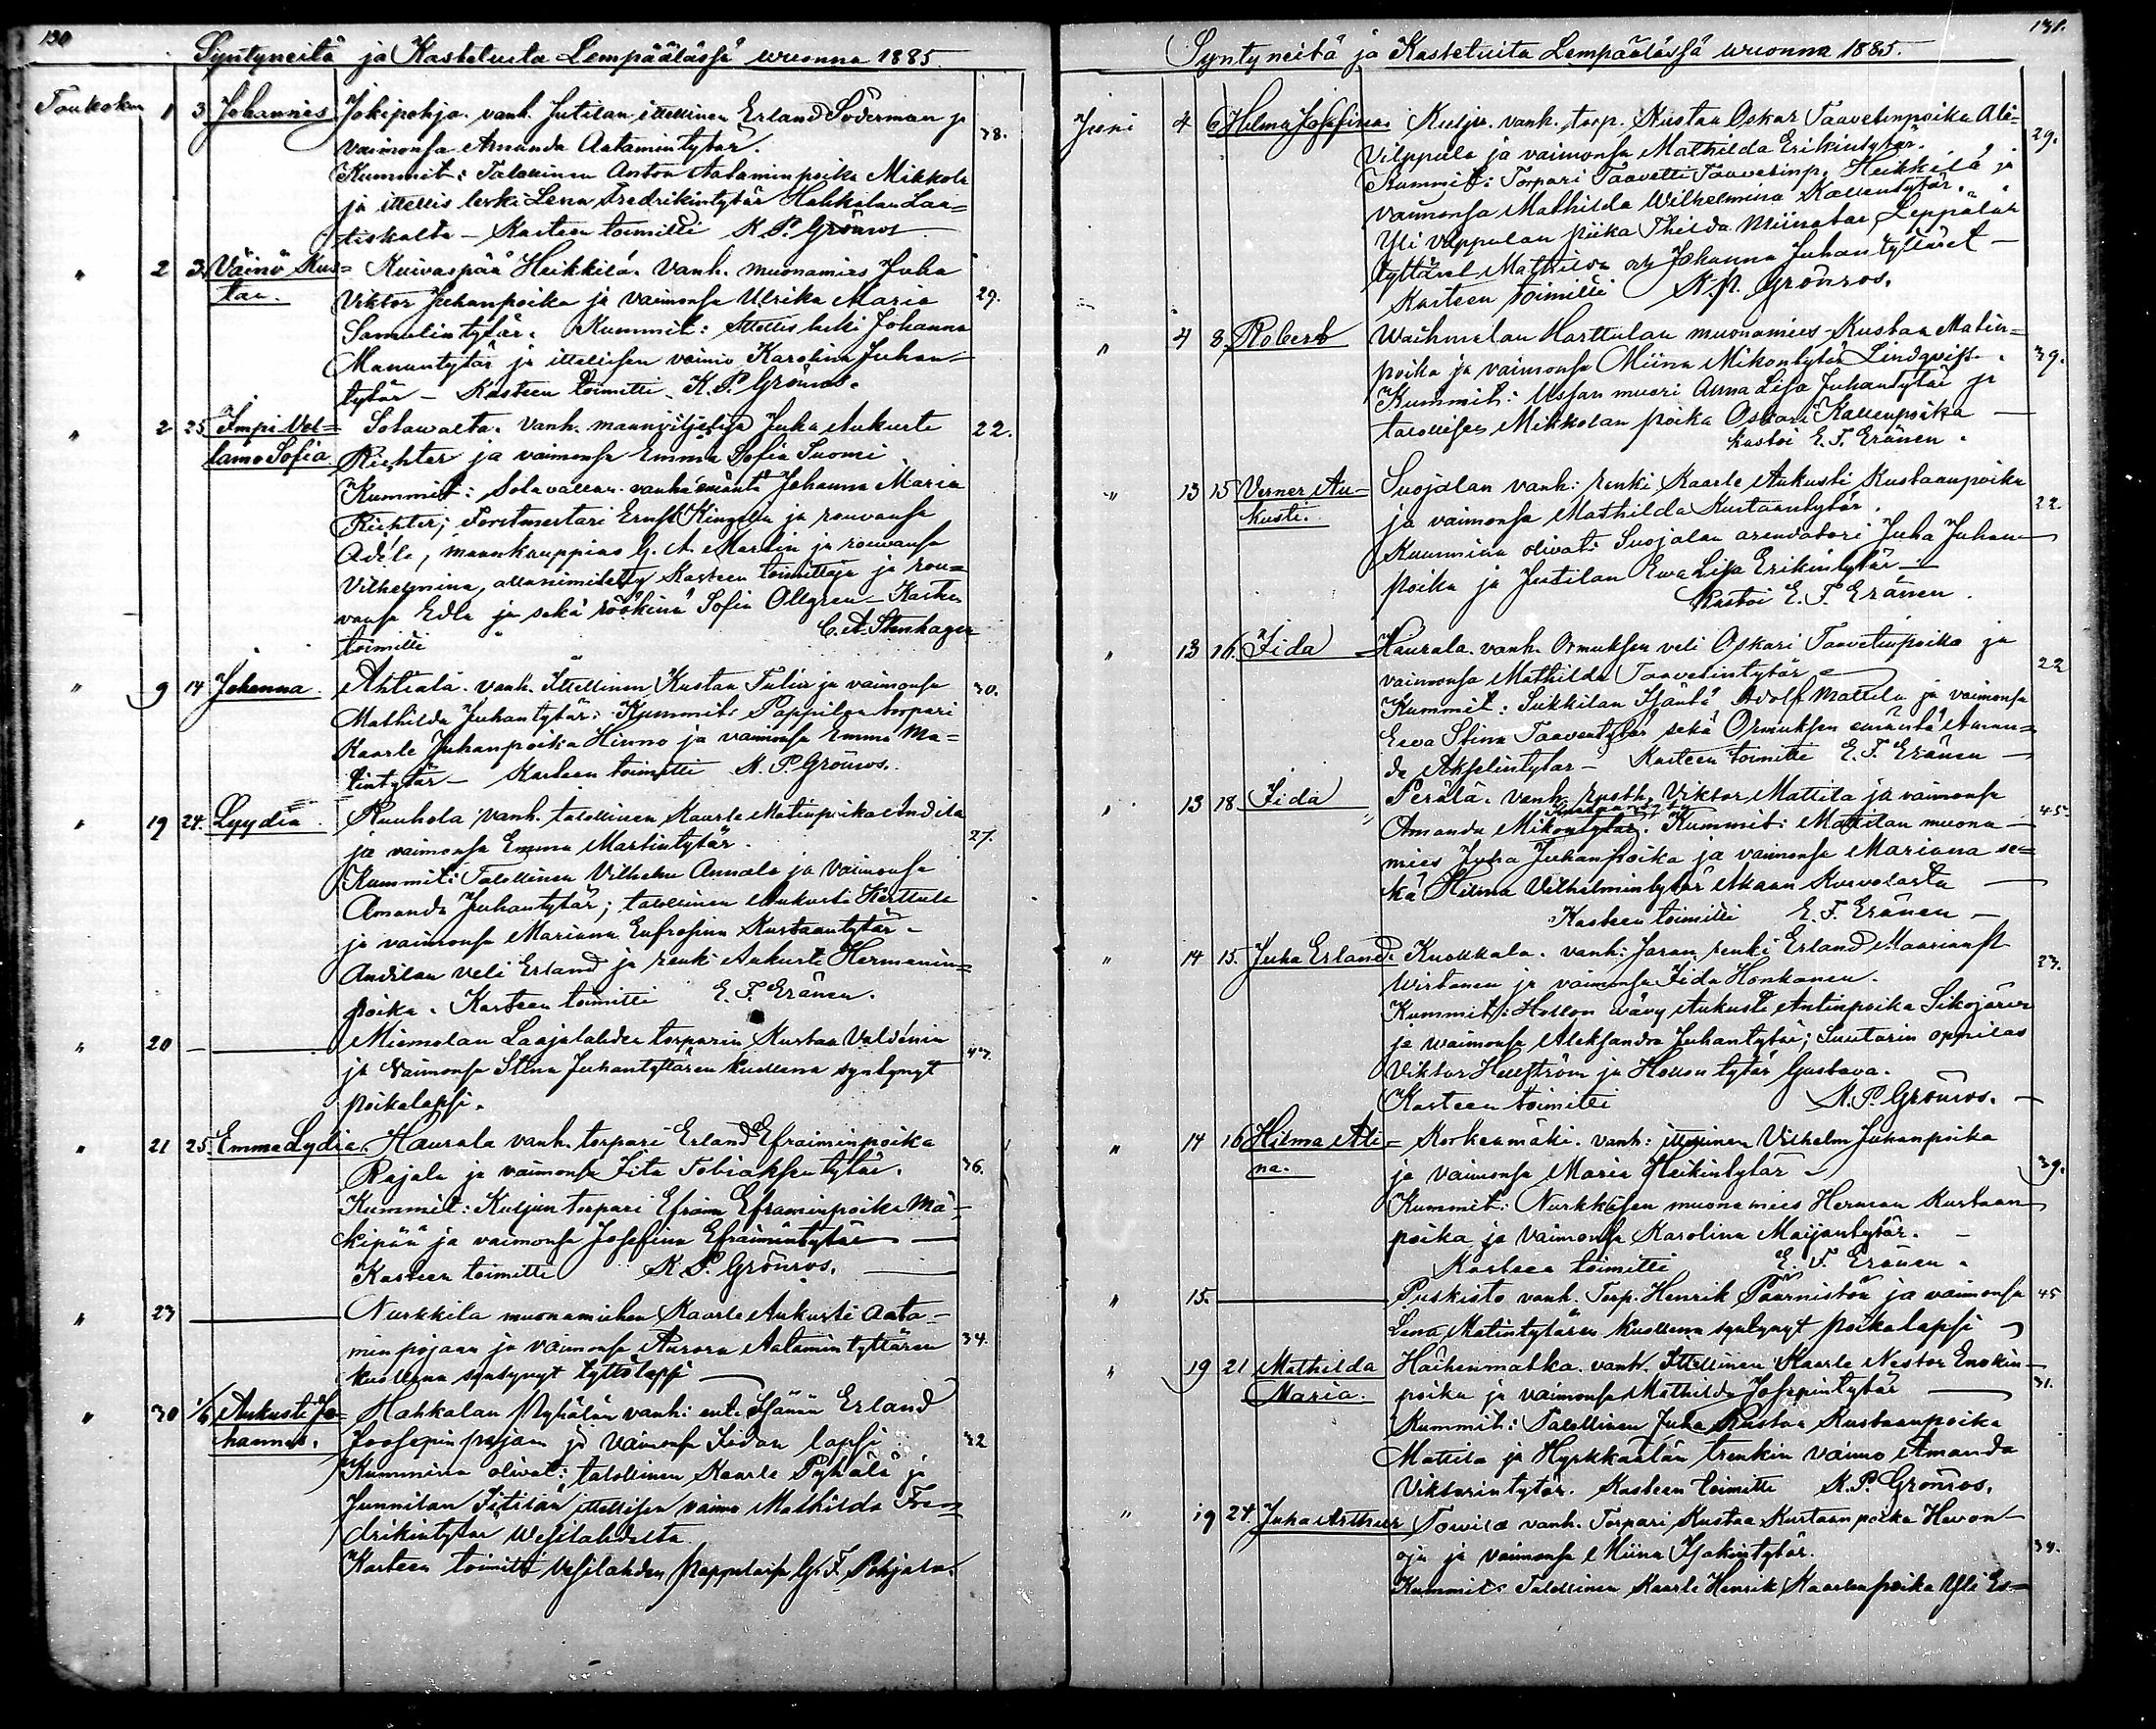 130
Syntyneitä ja Kastetuita Lempäälässä wuonna 1885.
Toukokuu 1 3 Johannes Jokipohja. vanh. Jutilan ittellinen Erland Söderman ja 38.
vaimonsa Amanda Aatamintytär.
Kummit: Talollinen Anton Aataminpoika Mikkola
ja ittellis leski Lena Fredrikintytär Hahkalan Laa=
tiskalta – Kasteen toimitti K. P. Grönros
" 2 3. Väinö Kus= Kuivaspää Heikkilä. vanh. muonamies Juha
taa. Viktor Juhanpoika ja vaimonsa Ulrika Maria 29.
Samulintytär. Kummit: Ittellis leski Johanna
Manuntytär ja ittellisen vaimo Karolina Juhan=
tytär – Kasteen toimitti K. P. Grönros.
" 2 25 Impi Vel= Sotawalta. Vanh. maanviljelijä Juha Aukusti 22.
lamo Sofia Richter ja vaimonsa Emma Sofia Suomi
Kummit: Sotavallan vanha emäntä Johanna Maria
Richter; Forstmestari Ernst Kingelin ja rouvansa
Adéle, maankauppias G. A. Martin ja rouvansa
Vilhelmina, allanimitetty Kasteen toimittaja ja rou=
vansa Edla ja sekä röökinä Sofia Ollgren – Kasteen
toimitti C. A. Stenhagen
" 9 14 Johanna. Ahtiala. vanh. Ittellinen Kustaa Tulin ja vaimonsa 30.
Mathilda Juhantytär: Kummit: Pappilan torpari
Kaarle Juhanpoika Hinno ja vaimonsa Emma Ma=
tintytär – Kasteen toimitti K. P. Grönros.
" 19 24. Lyydia. Ruuhola vanh. talollinen Kaarle Matinpoika Andila 27.
ja vaimonsa Emma Martintytär.
Kummit: Talollinen Vilhelm Annala ja Vaimonsa
Amanda Juhantytär; talollinen Aukusti Herttula
ja vaimonsa Mariana Eufrosina Kustaantytär –
Andilan veli Erland ja renki Aukusti Hermanin=
poika. Kasteen toimitti E. F. Eränen.
" 20 — Miemolan Laajalahden torparin Kustaa Valdénin 47.
ja Vaimonsa Stina Juhantyttären kuollena syntynyt
poikalapsi.
" 21 25 Emma Lydia. Haurala vanh. torpari Erland Efraiminpoika
Rajala ja vaimonsa Iita Tobiaksentytär. 36.
Kummit: Kuljun torpari Efraim Efraiminpoika Mä=
kipää ja vaimonsa Josefina Efraimintytär —
Kasteen toimitti K. P. Grönros. —
" 23 — Nurkkila muonamiehen Kaarle Aukusti Aata=
min pojan ja vaimonsa Aurora Aatamin tyttären 34.
kuollena syntynyt tyttölapsi —
" 30 1/6 Aukusti Jo= Hahkalan Pyhälän vanh: ent. Isännän Erland
hannes. Joosepin pojan ja Vaimonsa Iidan lapsi 32
Kummina olivat: talollinen Kaarle Pyhälä ja
Junnilan Iitilän ittellisen vaimo Mathilda Fre=
drikintytär Wesilahdelta
Kasteen toimitti Vesilahden Kappalaisen G. F. Pohjala.
131.
Syntyneitä ja Kastetuita Lempäälässä wuonna 1885.
Juni 4 6 Hilma Josefina Kulju. vanh. torp. Kustaa Oskar Taavetinpoika Ali= 29.
Vilppula ja vaimonsa Mathilda Erikintytär.
Kummit: Torpari Taavetti Taavetinp. Heikkilä ja
vaimonsa Mathilda Wilhelmina Kallentytär.
Yli Vilppulan piika Thilda Miinatar Leppälän
tyttäret Mathilda ock Johanna Juhantyttäret –
Kasteen toimitti K. P. Grönros.
" 4 8. Robert Waihmalan Harttulan muonamies Kustaa Matin=
poika ja vaimonsa Miina Mikontytär Lindqvist. 39.
Kummit: Ussan muori Anna Lisa Juhantytär ja
talollisen Mikkolan poika Oskari Kallenpoika —
Kastoi E. F. Eränen.
" 13 15 Verner Au= Suojalan vanh: renki Kaarle Aukusti Kustaanpoika
kusti. ja vaimonsa Mathilda Kustaantytär. 22.
Kummina olivat: Suojalan arendatori Juha Juhan
poika ja Jutilan Ewa Lisa Erikintytär —
Kastoi E. F. Eränen.
" 13 16. Iida Haurala. vanh. Ormuksen veli Oskari Taavetinpoika ja
vaimonsa Mathilda Taavetintytär 22
Kummit: Sukkilan Isäntä Adolf Mattila ja vaimonsa
Eeva Stina Taaventytär sekä Ormuksen emäntä Aman=
da Akselintytär – Kasteen toimitti E. F. Eränen —
" 13 18 Iida Perälä. vanh. Viktor Mattila ja vaimonsa
Amanda Mikontytär. Kummit: Mattilan muona 45.
mies Juha Juhanpoika ja vaimonsa Mariana se=
kä Hilma Vilhelmintytär
Kasteen toimitti E. F. Eränen —
" 14 15. Juha Erland. Kuokkala. vanh: Jaran renki Erland Maarianp. 23.
Wirtanen ja vaimonsa Iida Honkanen.
Kummit: Hollon wävy Aukusti Antinpoika Sikojärvi
ja waimonsa Aleksandra Juhantytär; Suutarin oppilas
Viktor Hellström ja Hollon tytär Gustava.
Kasteen toimitti K. P. Grönros. —
" 14 16 Hilma Ali= Korkeamäki. vanh: ittellinen Vilhelm Juhanpoika
na. ja vaimonsa Maria Heikintytär 39.
Kummit: Nurkkasen muonamies Herman Kustaan
poika ja Vaimonsa Karolina Maijantytär. –
Kasteen toimitti E. F. Eränen.
" 15. — Puskisto vanh. Torp. Henrik Päärnistön ja vaimonsa 45
Lena Matintytären kuollena syntynyt poikalapsi
" 19 21 Mathilda Häihenmatka. vanh. Ittellinen Kaarle Nestor Enokin
Maria. poika ja vaimonsa Mathilda Josepintytär — 31.
Kummit: Talollinen Juha Kustaa Kustaanpoika
Mattila ja Hyrkkäälän trenkin vaimo Amanda
Viktorintytär. Kasteen toimitti K. P. Grönros.
" 19 24. Juha Arthur Towila vanh. Torpari Kustaa Kustaanpoika Havon
oja ja vaimonsa Miina Isakintytär. 34.
Kummit: Talollinen Kaarle Henrik Kaarlenpoika Yli Es=